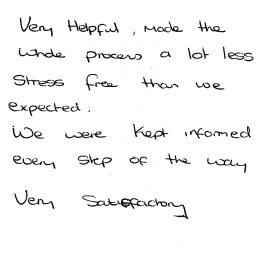 Very Helpful, made the
whole process a lot less
stress free than we
expected.
We were kept informed
every step of the way
Very Satisfactory